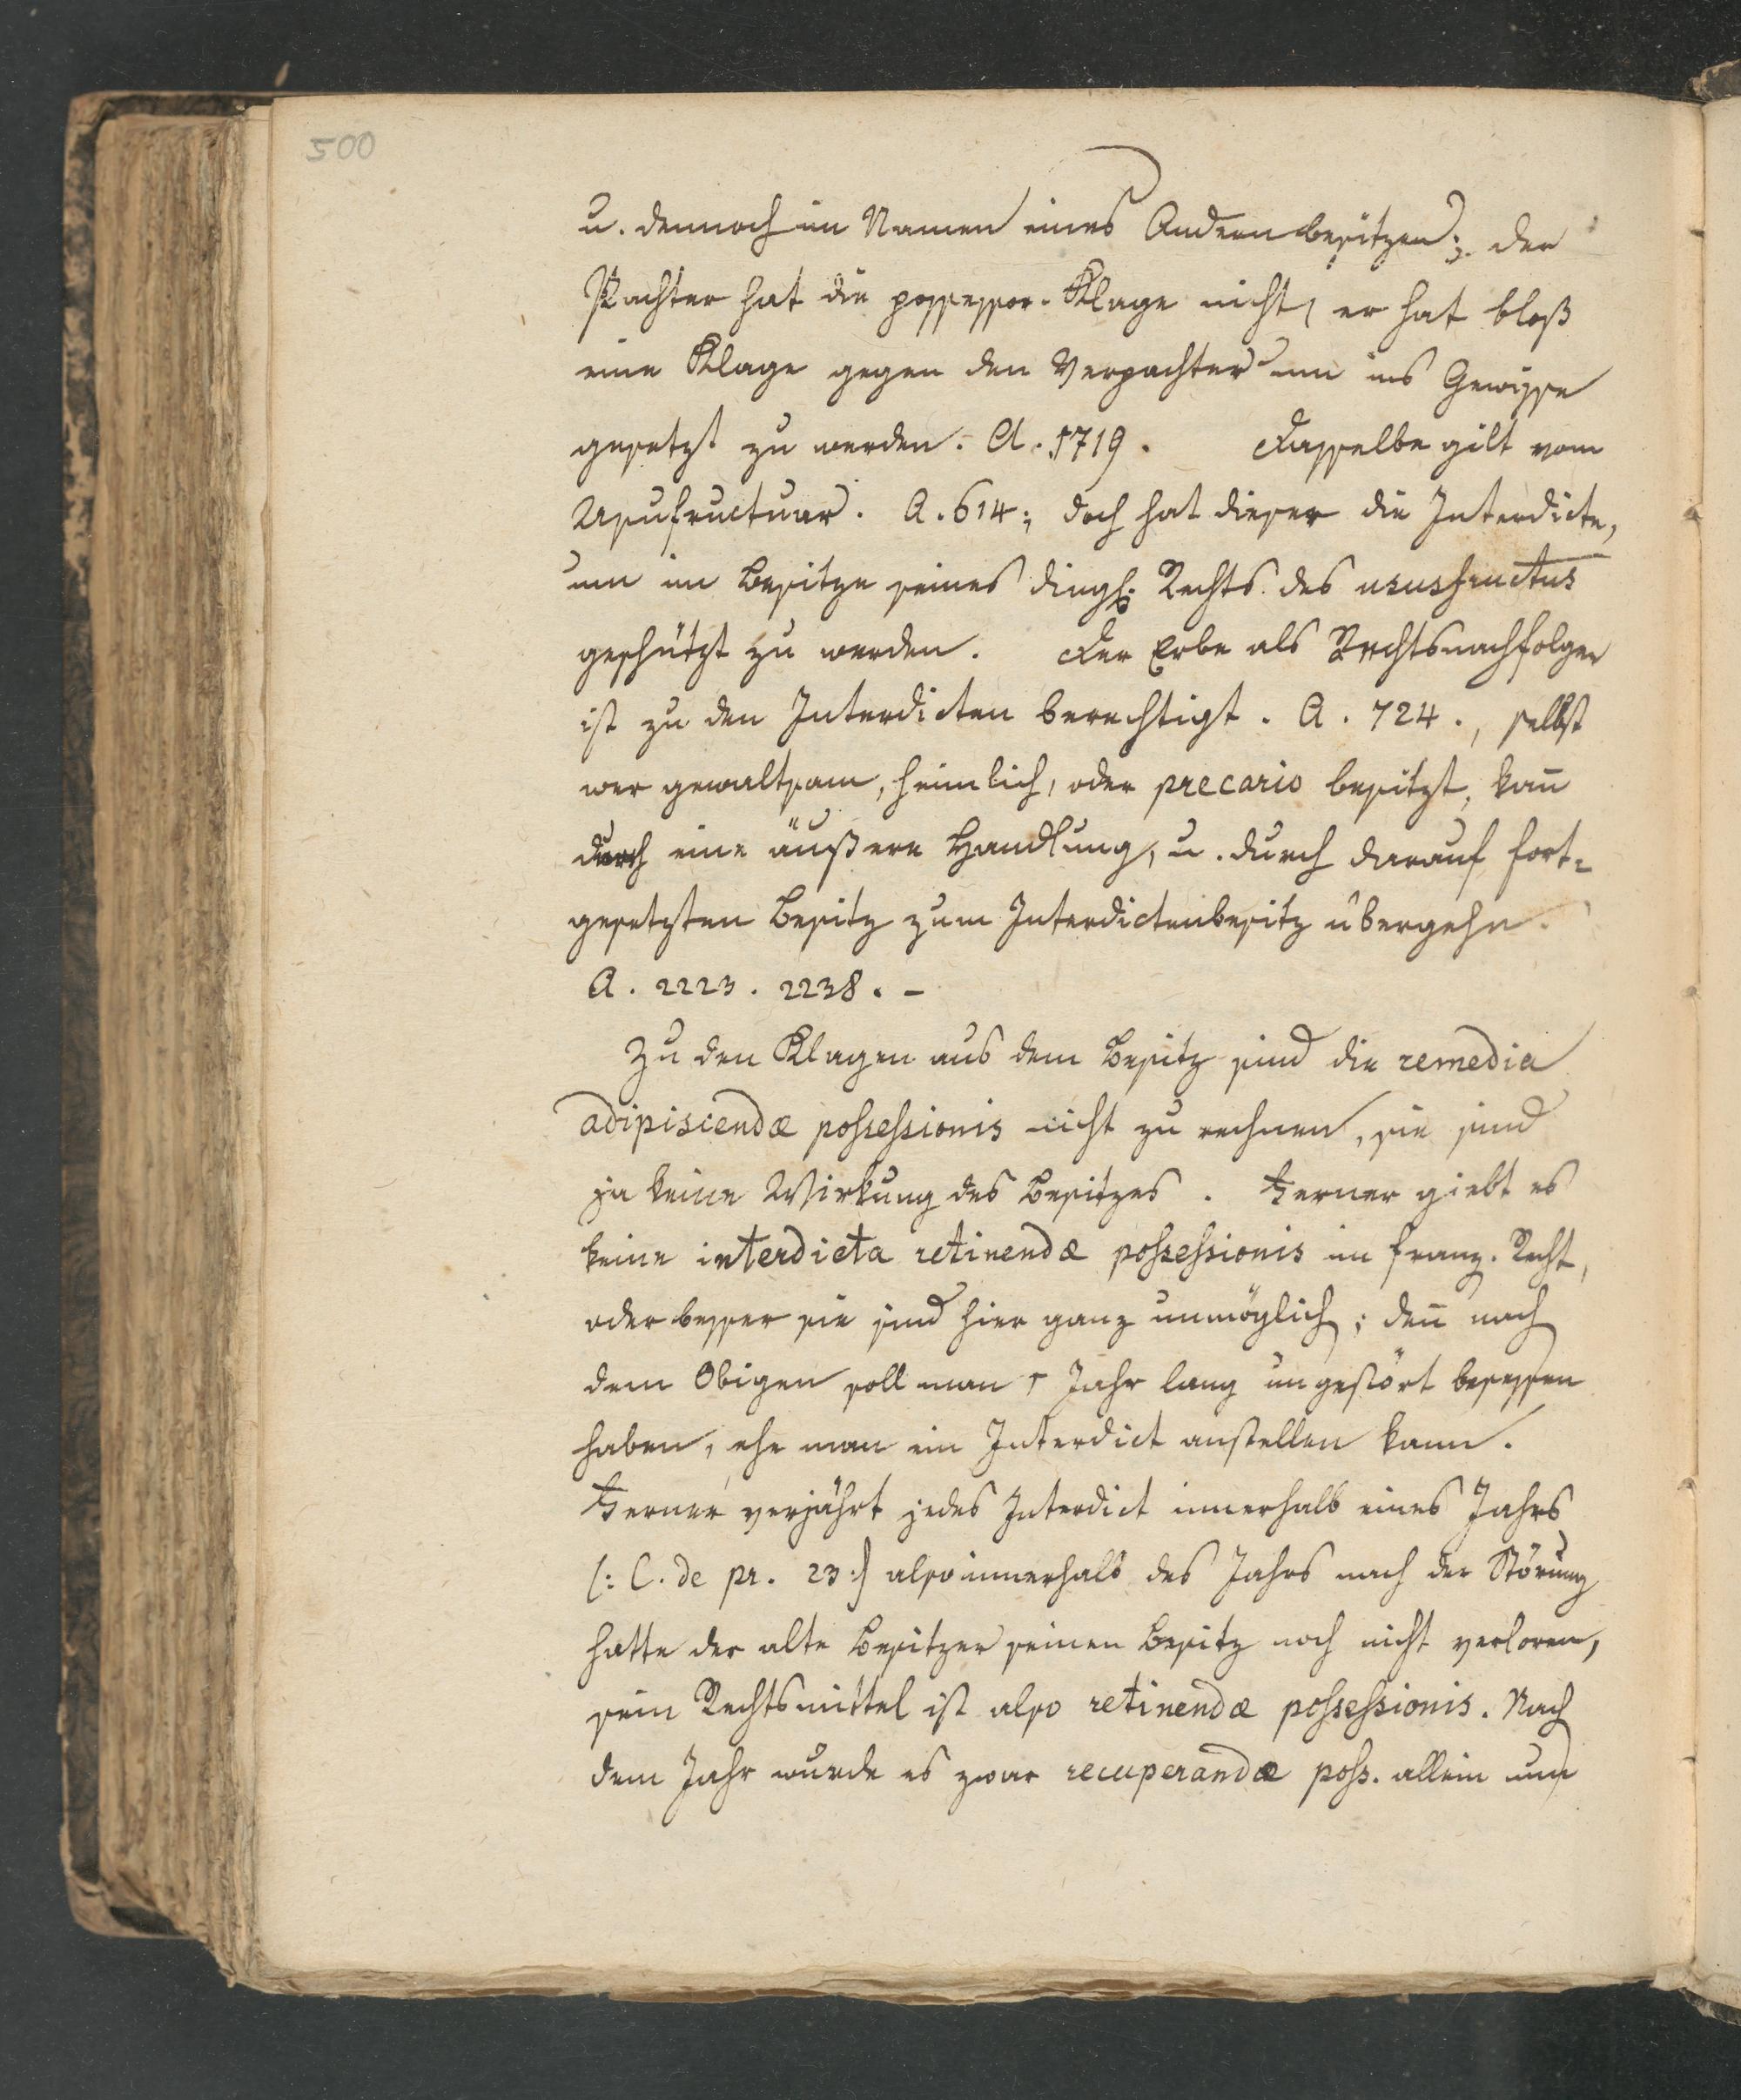 500
u. dennoch im Namen eines Andern besitzen; der
Pachter hat die possessor. Klage nicht, er hat bloß
eine Klage gegen den Verpachter um ins Gewisse
gesetzt zu werden. A. 1719. Dasselbe gilt vom
Usufructuar. A. 614; doch hat dieser die Interdicte,
um im Besitze seines dingl. Rechts des ususfructus
geschützt zu werden. Der Erbe als Rechtsnachfolger
ist zu den Interdicten berechtigt. A. 724., selbst
wer gewaltsam, heimlich, oder precario besitzt, kan̄
durch eine äußere Handlung, u. durch darauf fort-
gesetzten Besitz zum Interdictenbesitz übergehn.
A. 2223. 2238. –
Zu den Klagen aus dem Besitz sind die remedia
adipiscendæ possessionis nicht zu rechnen, sie sind
ja keine Wirkung des Besitzes. Ferner giebt es
keine interdicta retinendæ possessionis im franz. Recht,
oder besser sie sind hier ganz unmöglich; den̄ nach
dem Obigen soll man 1 Jahr lang ungestört besessen
haben, ehe man ein Interdict anstellen kann.
Ferner verjährt jedes Interdict innerhalb eines Jahrs
(: C. de pr. 23 :) also innerhalb des Jahrs nach der Störung
hatte der alte Besitzer seinen Besitz noch nicht verloren,
sein Rechtsmittel ist also retinendæ possessionis. Nach
dem Jahr wurde es zwar recuperandæ poss. allein nun